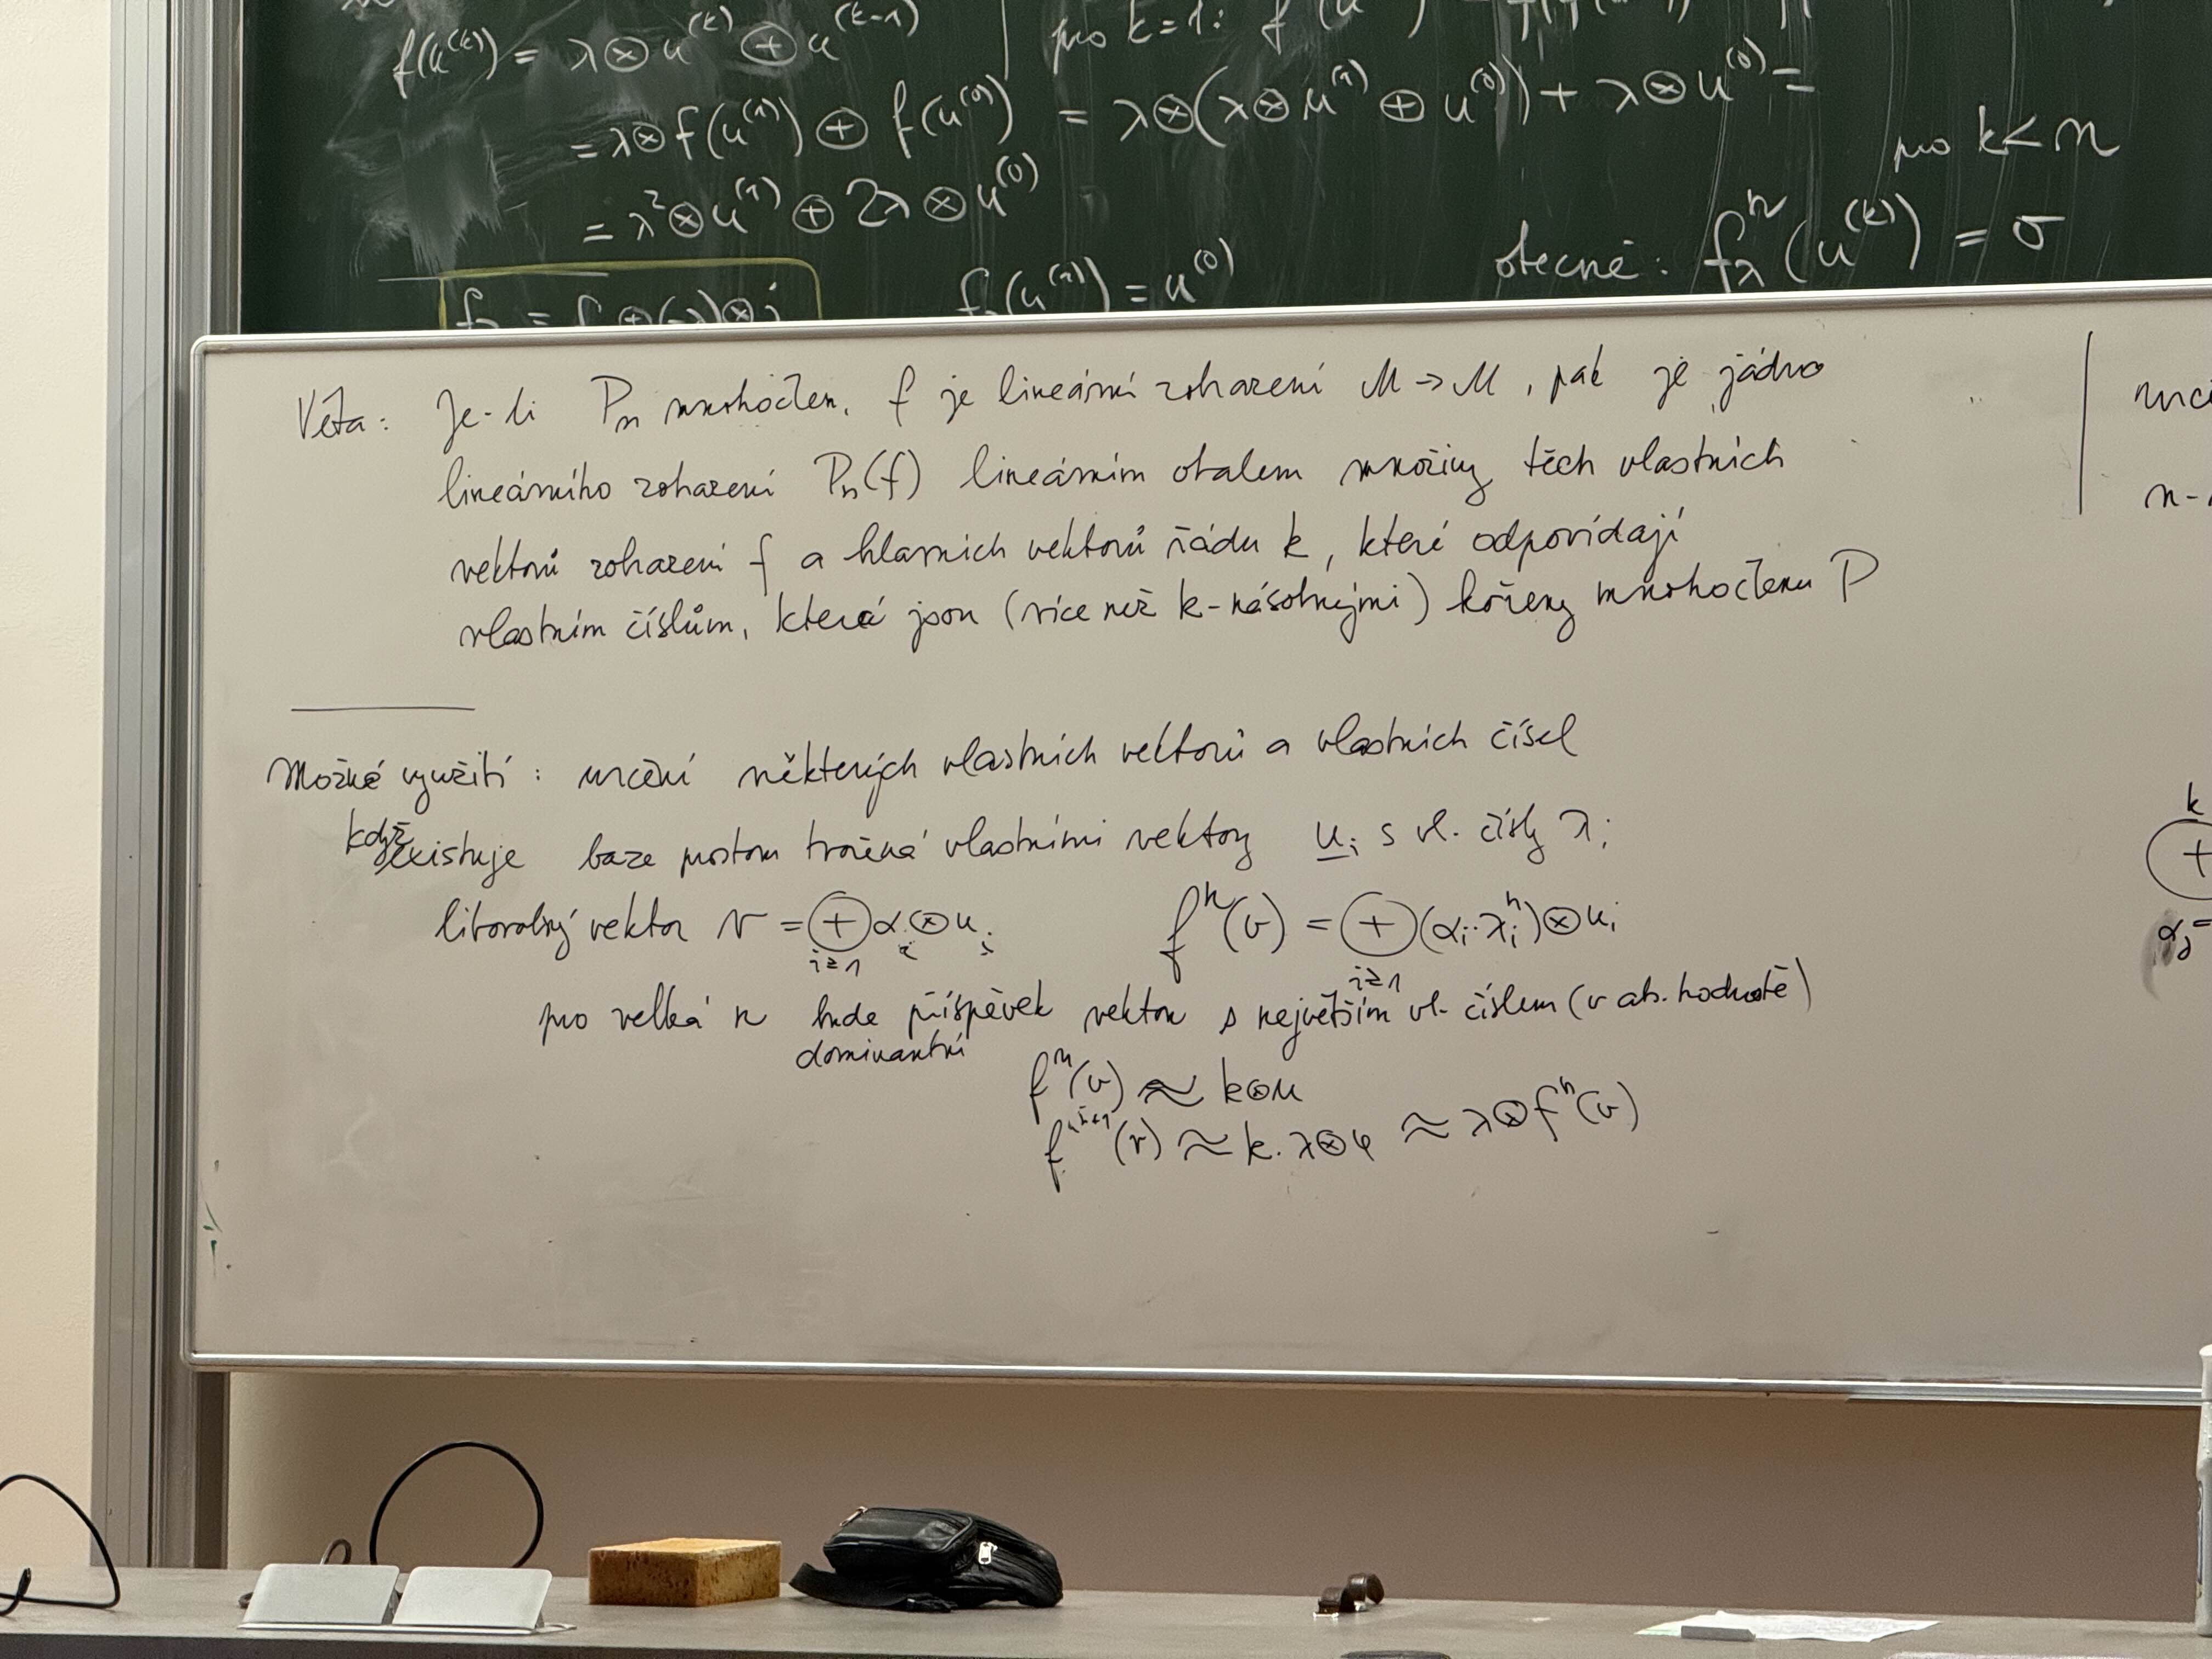 f(u^(k)) = λ⊗u^(k) ⊕ u^(k-1)
pro k=1:
= λ⊗f(u^(1)) ⊕ f(u^(0)) = λ⊗(λ⊗u^(1) ⊕ u^(0)) + λ⊗u^(0) =
= λ²⊗u^(1) ⊕ 2λ⊗u^(0)
pro k<n
obecně: f_λ^n(u^(k)) = σ
f_λ = f⊕(-λ)⊗j
f_λ(u^(1)) = u^(0)
Věta: Je-li P_n mnohočlen, f je lineární zobrazení M→M, pak je jádro
lineárního zobrazení P_n(f) lineárním obalem množiny těch vlastních
vektorů zobrazení f a hlavních vektorů řádu k, které odpovídají
vlastním číslům, která jsou (více než k-násobnými) kořeny mnohočlenu P
Možné využití: určení některých vlastních vektorů a vlastních čísel
když existuje baze prostoru tvořená vlastními vektory u_i s vl. čísly λ_i
libovolný vektor v = ⊕_{i≥1} α_i⊗u_i f^n(v) = ⊕_{i≥1} (α_i·λ_i^n)⊗u_i
pro velká n bude příspěvek vektoru s největším vl. číslem (v abs. hodnotě)
dominantní
f^n(v) ≈ k⊗u
f^{n+1}(v) ≈ k·λ⊗u ≈ λ⊗f^n(v)
n-
k
⊕
α_j=